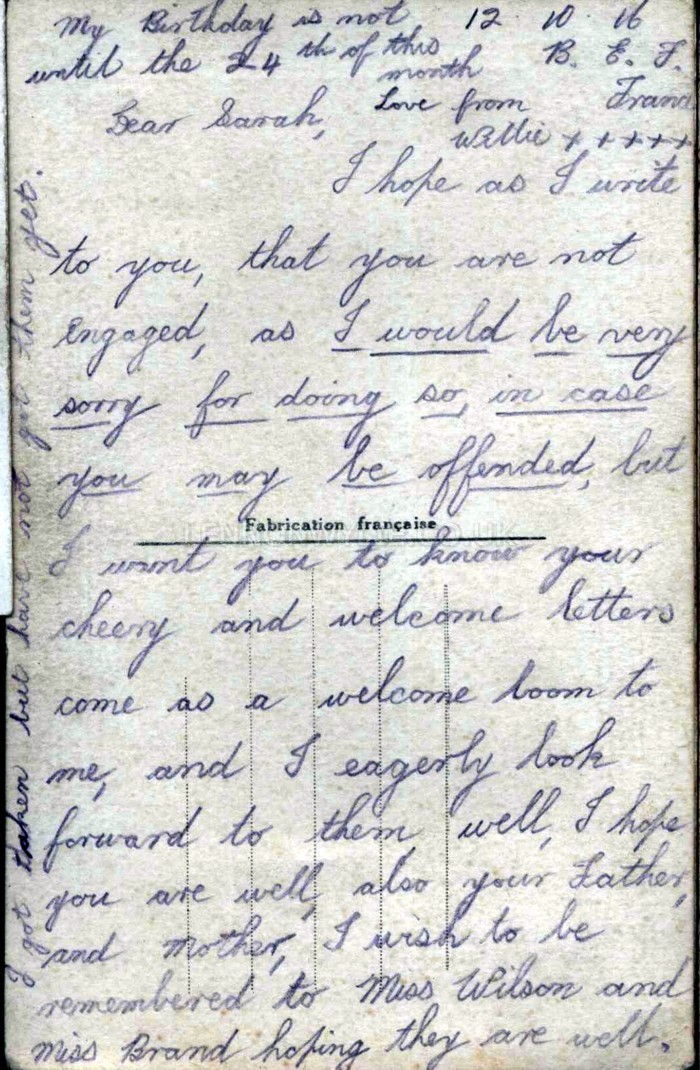 My Birthday is not
until the 24th of this
month
Love from
Willie + + + + +
12 10 16
B. E. F.
Franc
Dear Sarah,
I hope as I write
to you, that you are not
engaged, as I would be very
sorry for doing so, in case
you may be offended, but
Fabrication française
I want you to know your
cheery and welcome letters
come as a welcome boom to
me, and I eagerly look
forward to them, well, I hope
you are well, also your Father,
and Mother, I wish to be
remembered to Miss Wilson and
Miss Brand hoping they are well.
I got taken but have not got them yet.